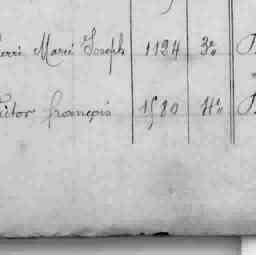 erri Marié Joseph 1124 3º
ictor françois 1580 4º